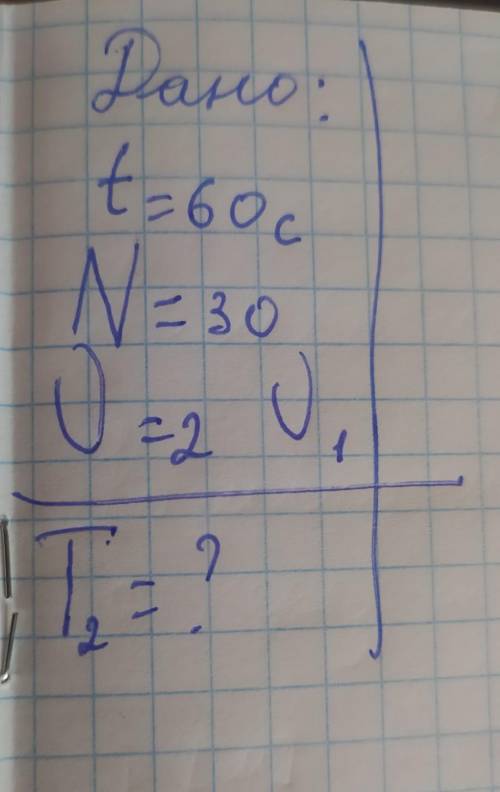 Дано:
t = 60 с
N = 30
υ = 2 υ₁
T₂ = ?